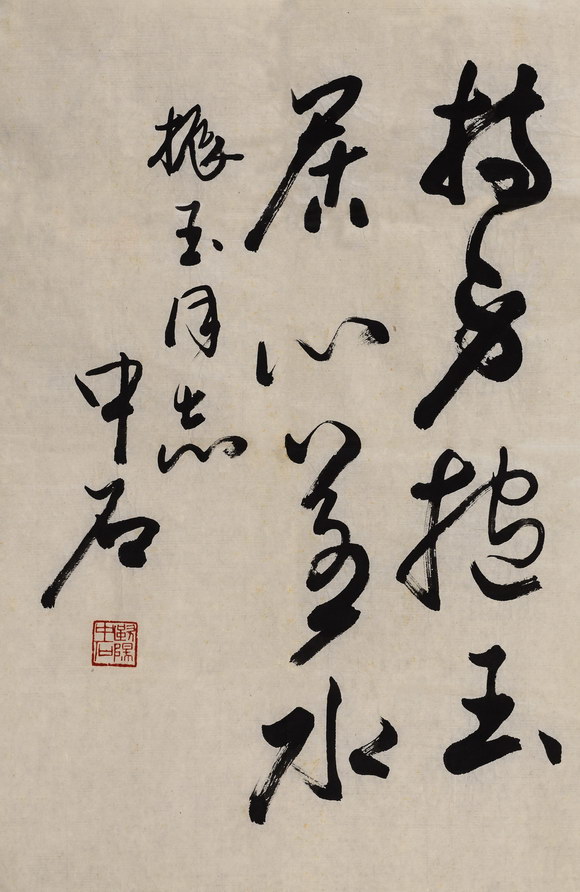 持身抱玉
居心善水
振玉同志
中石
歐陽中石